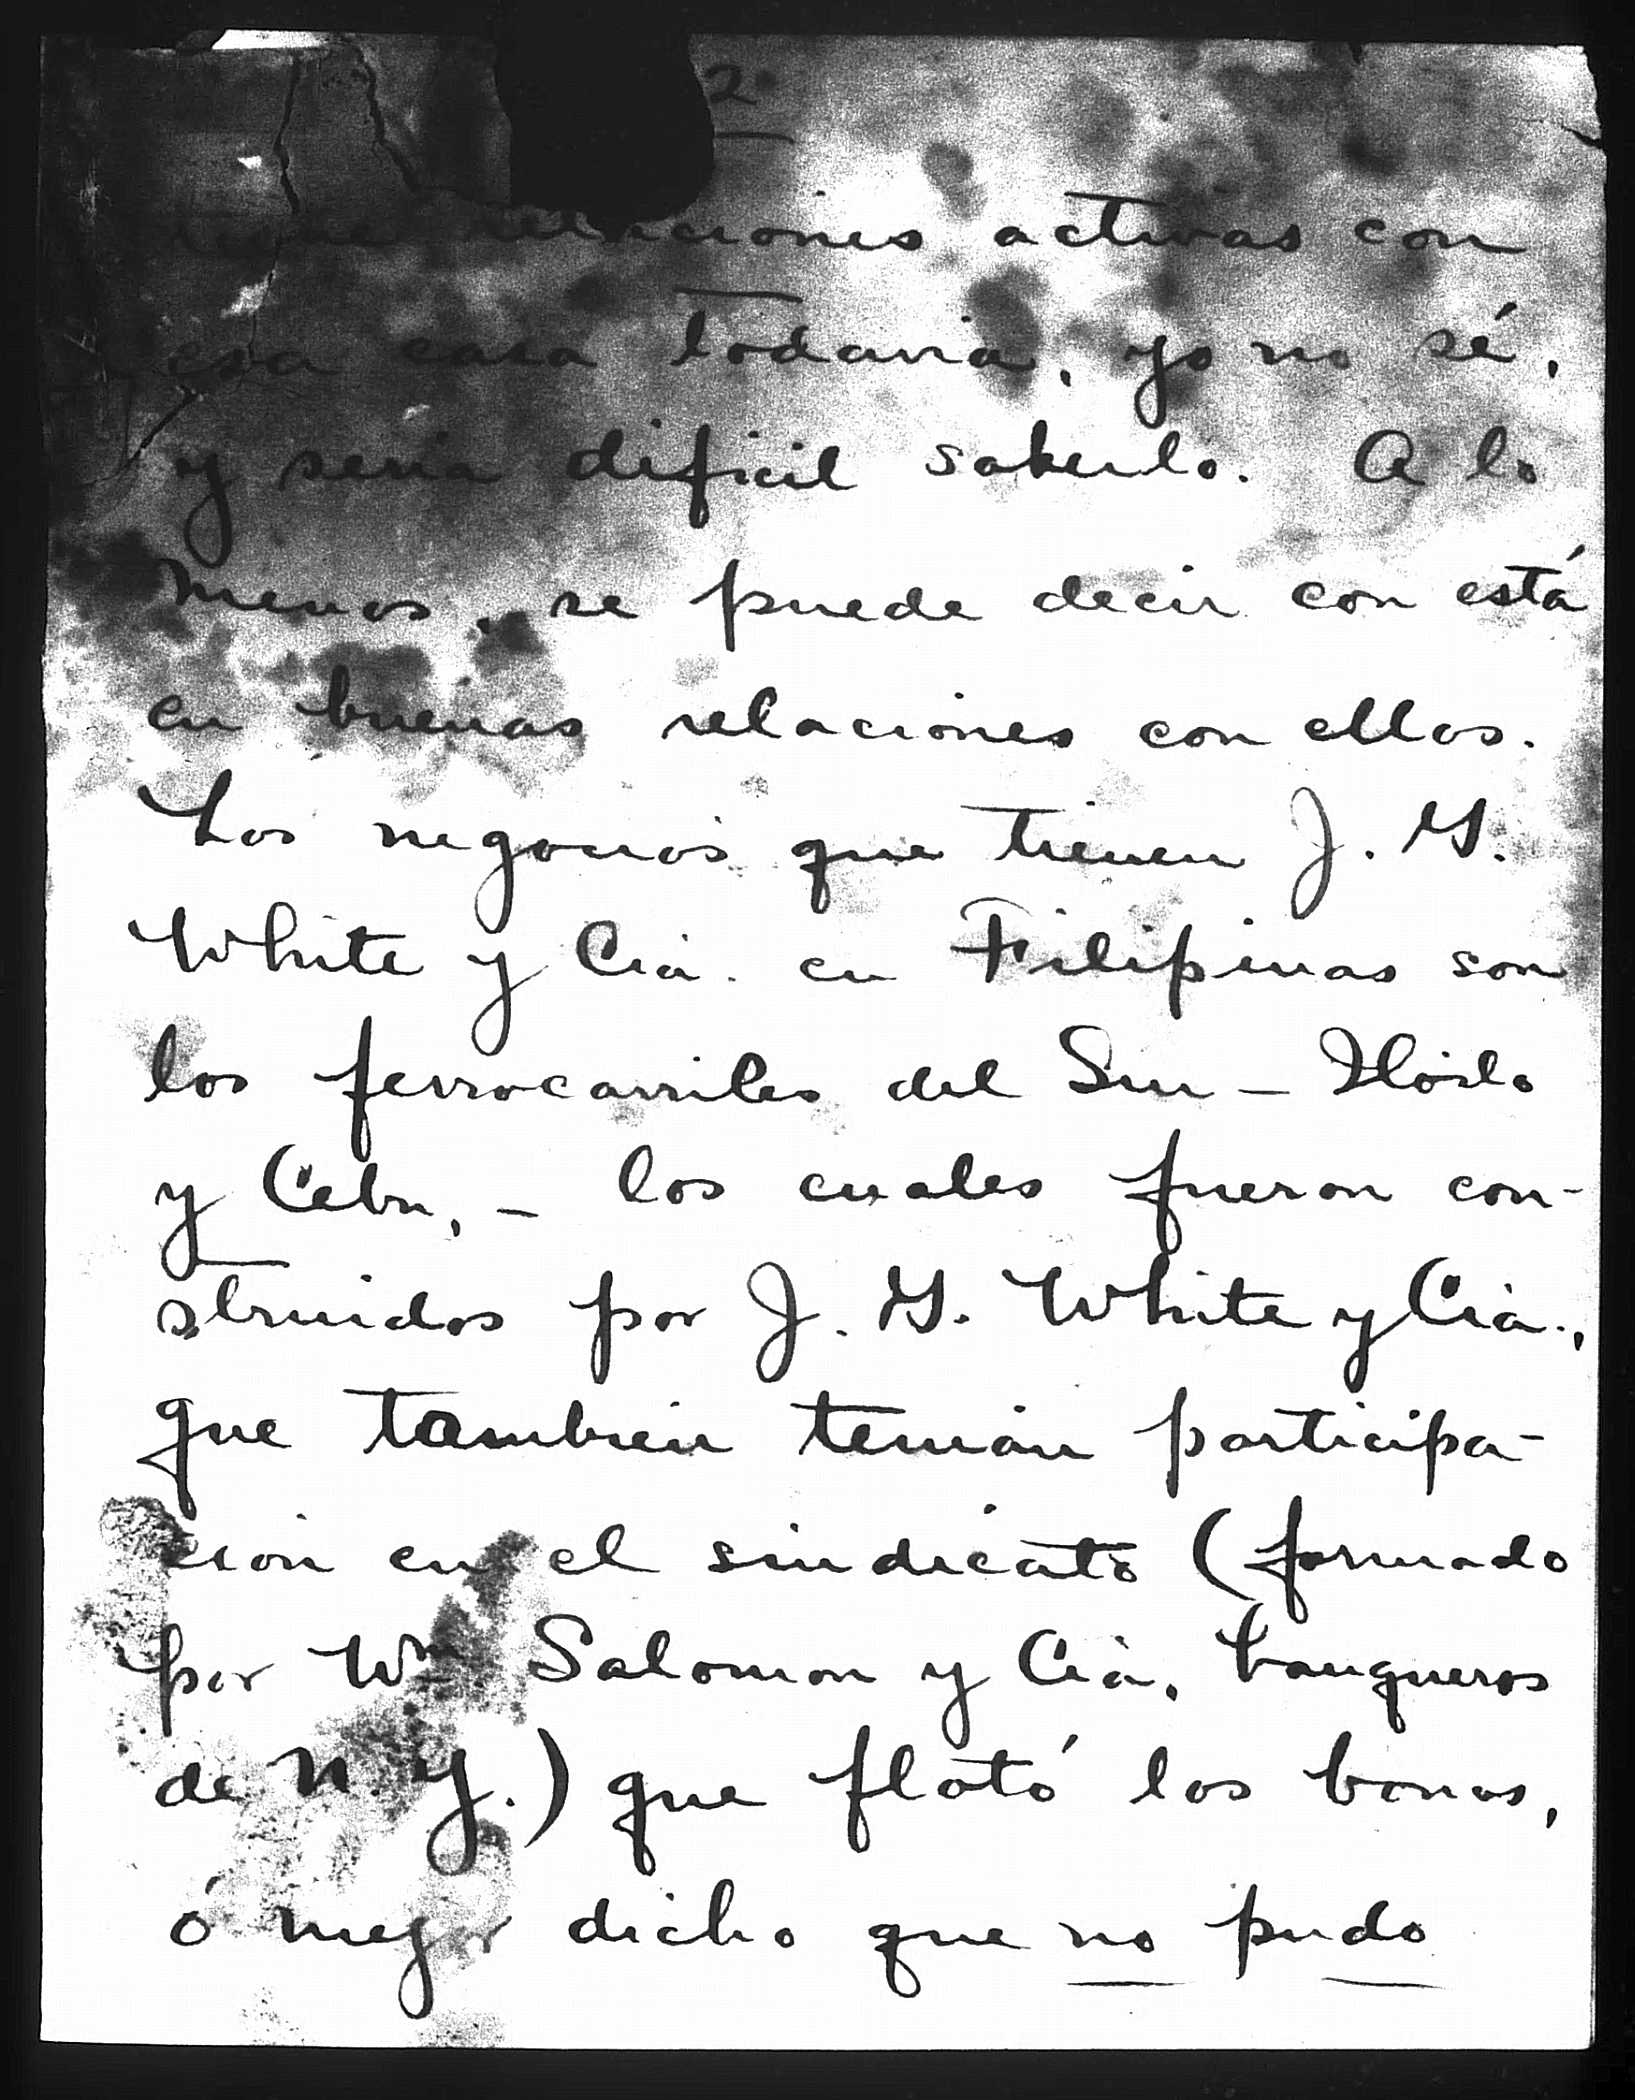 2.
tiene relaciones activas con
esa casa todavia, yo no sé,
y seria dificil saberlo. A lo
menos, se puede decir con está
en buenas relaciones con ellos.
Los negocios que tienen J. G.
White y Cia. en Filipinas son
los ferrocarriles del Sur — Iloilo
y Cebu, — los cuales fueron con-
struidos por J. G. White y Cia.,
que tambien tenian participa-
cion en el sindicato (formado
por Wm Salomon y Cia, banqueros
de N. Y.) que flotó los bonos,
ó mejor dicho que no pudo